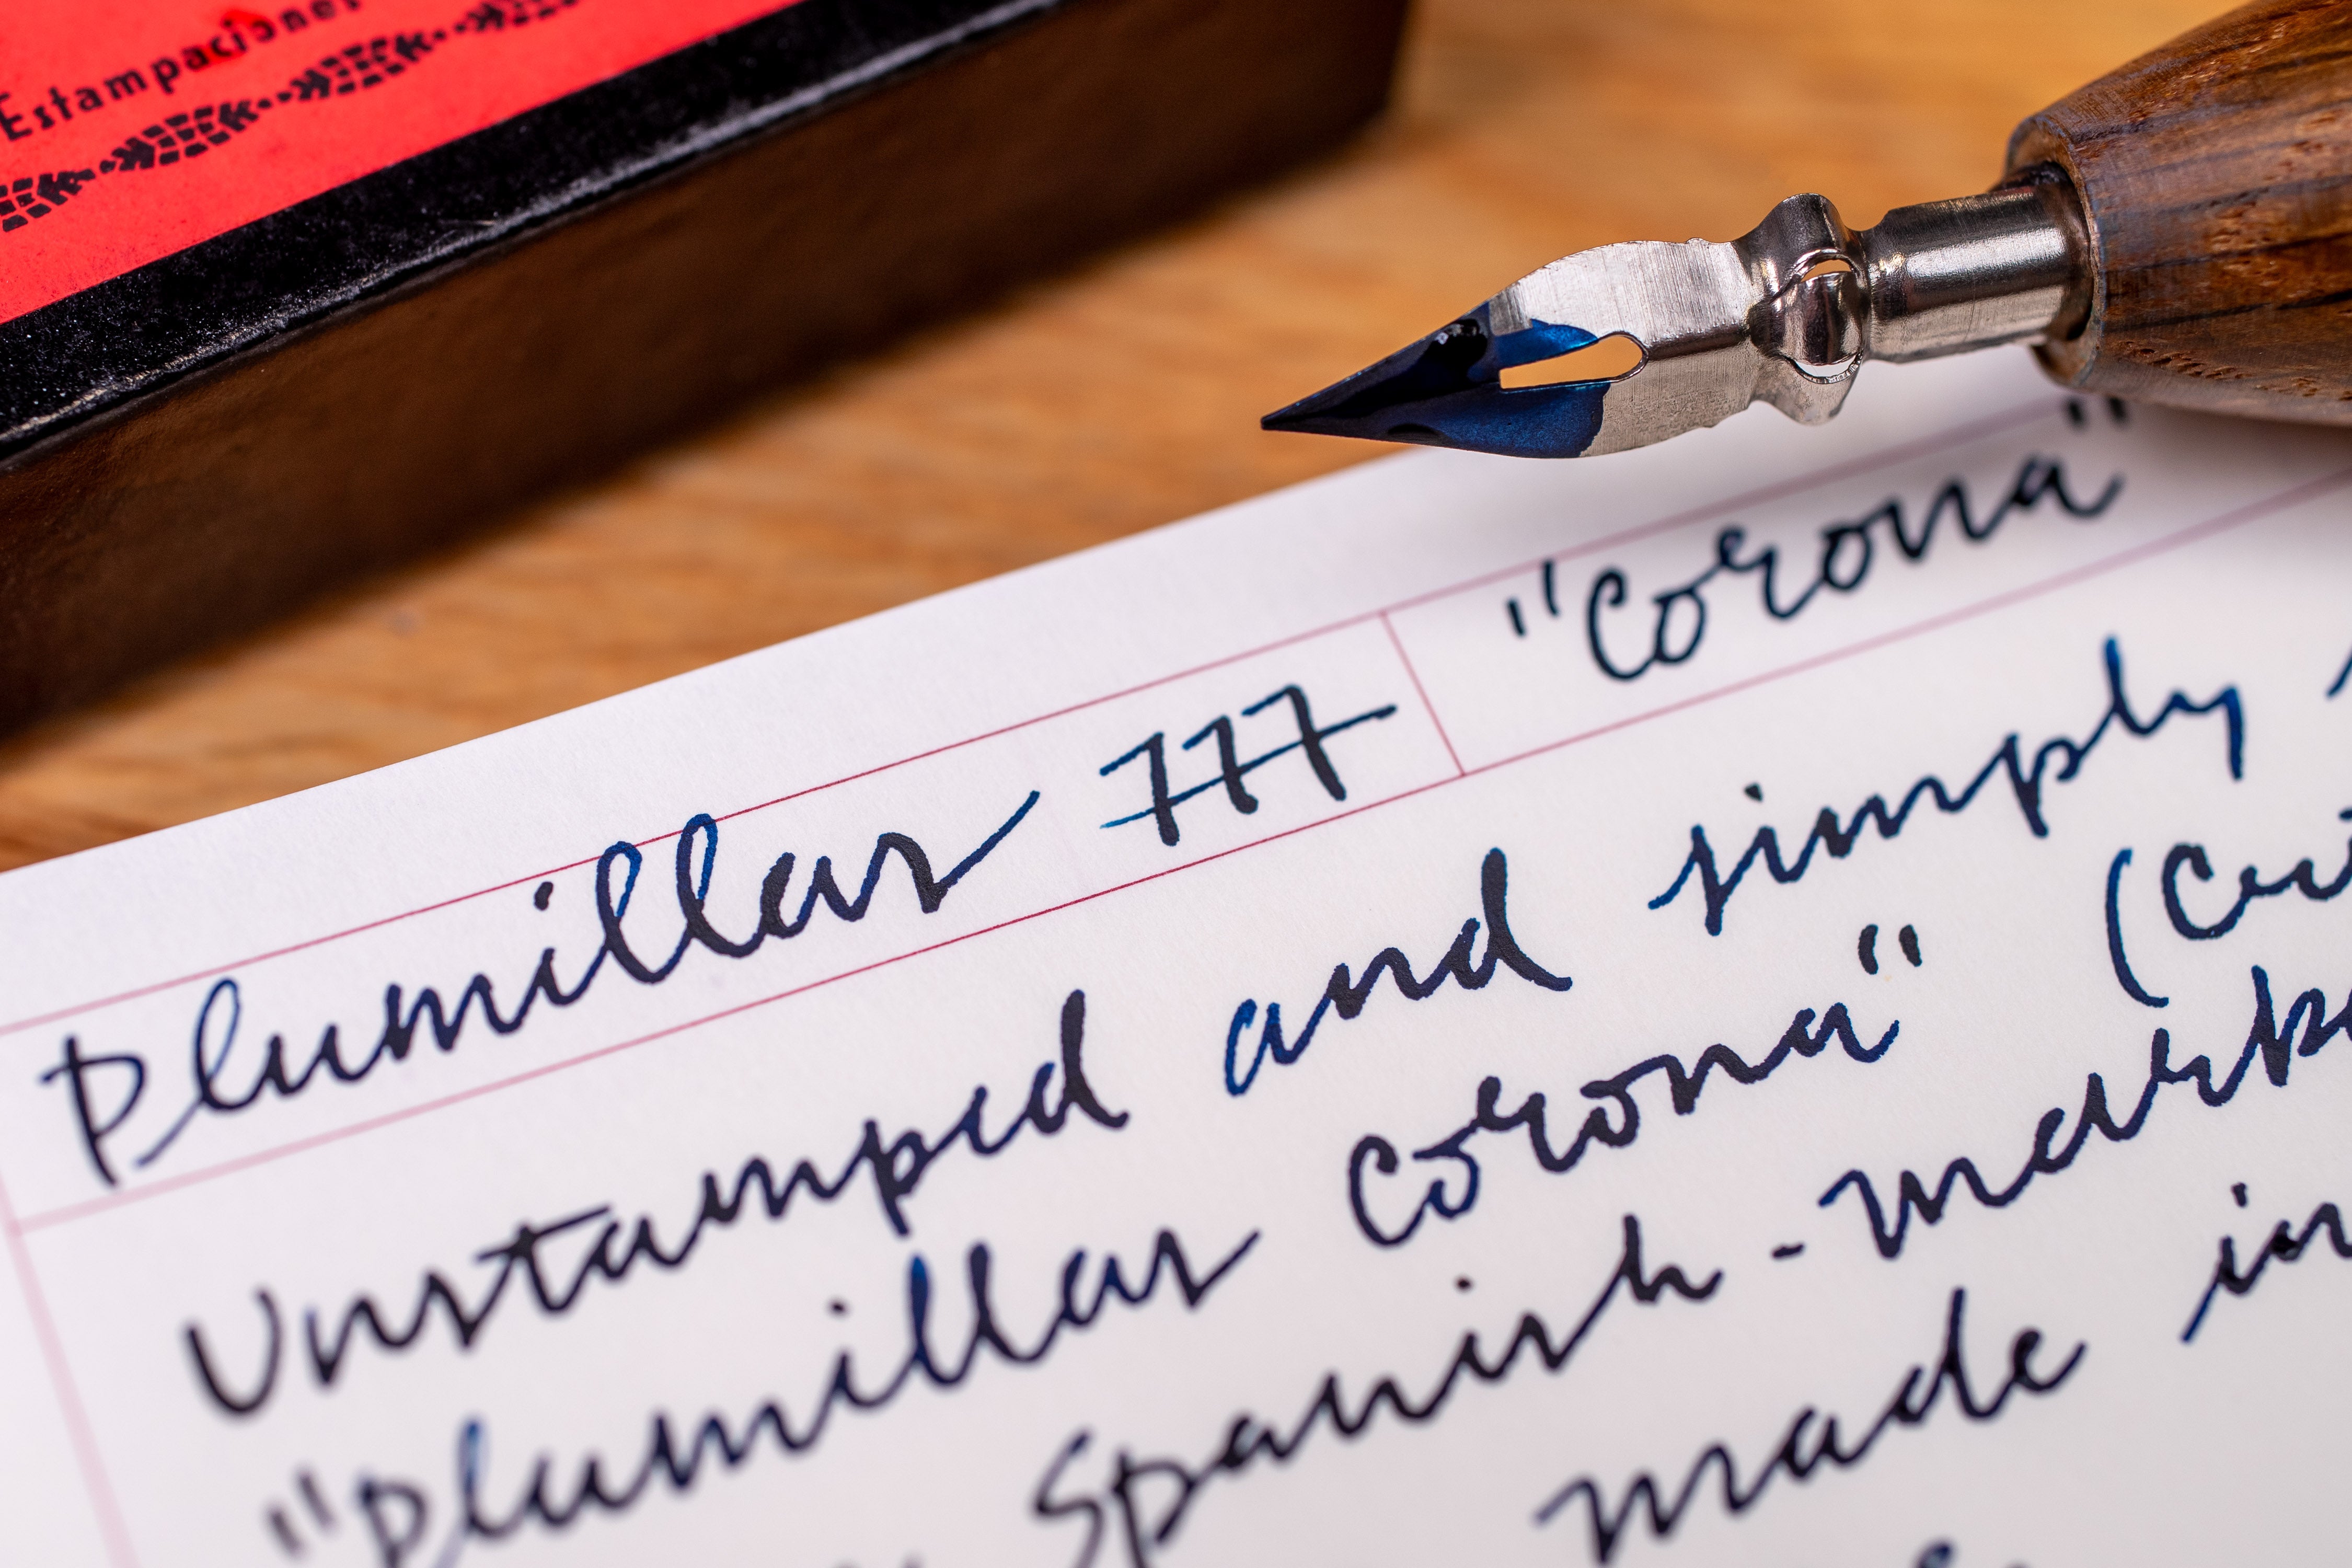 Estampaciones
Plumillas 777 "Corona"
Unstamped and simply
"Plumillas Corona"
Spanish-marke
made in